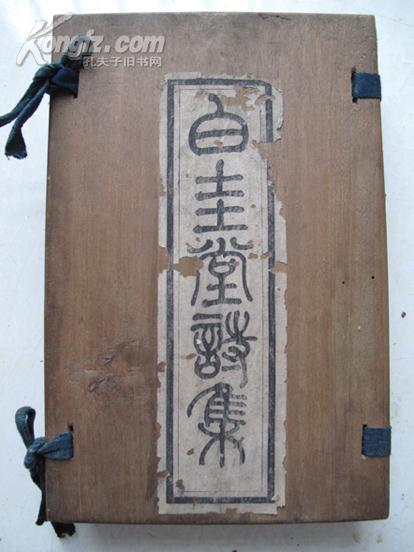 Kongfz.com
孔夫子旧书网
白圭堂詩集